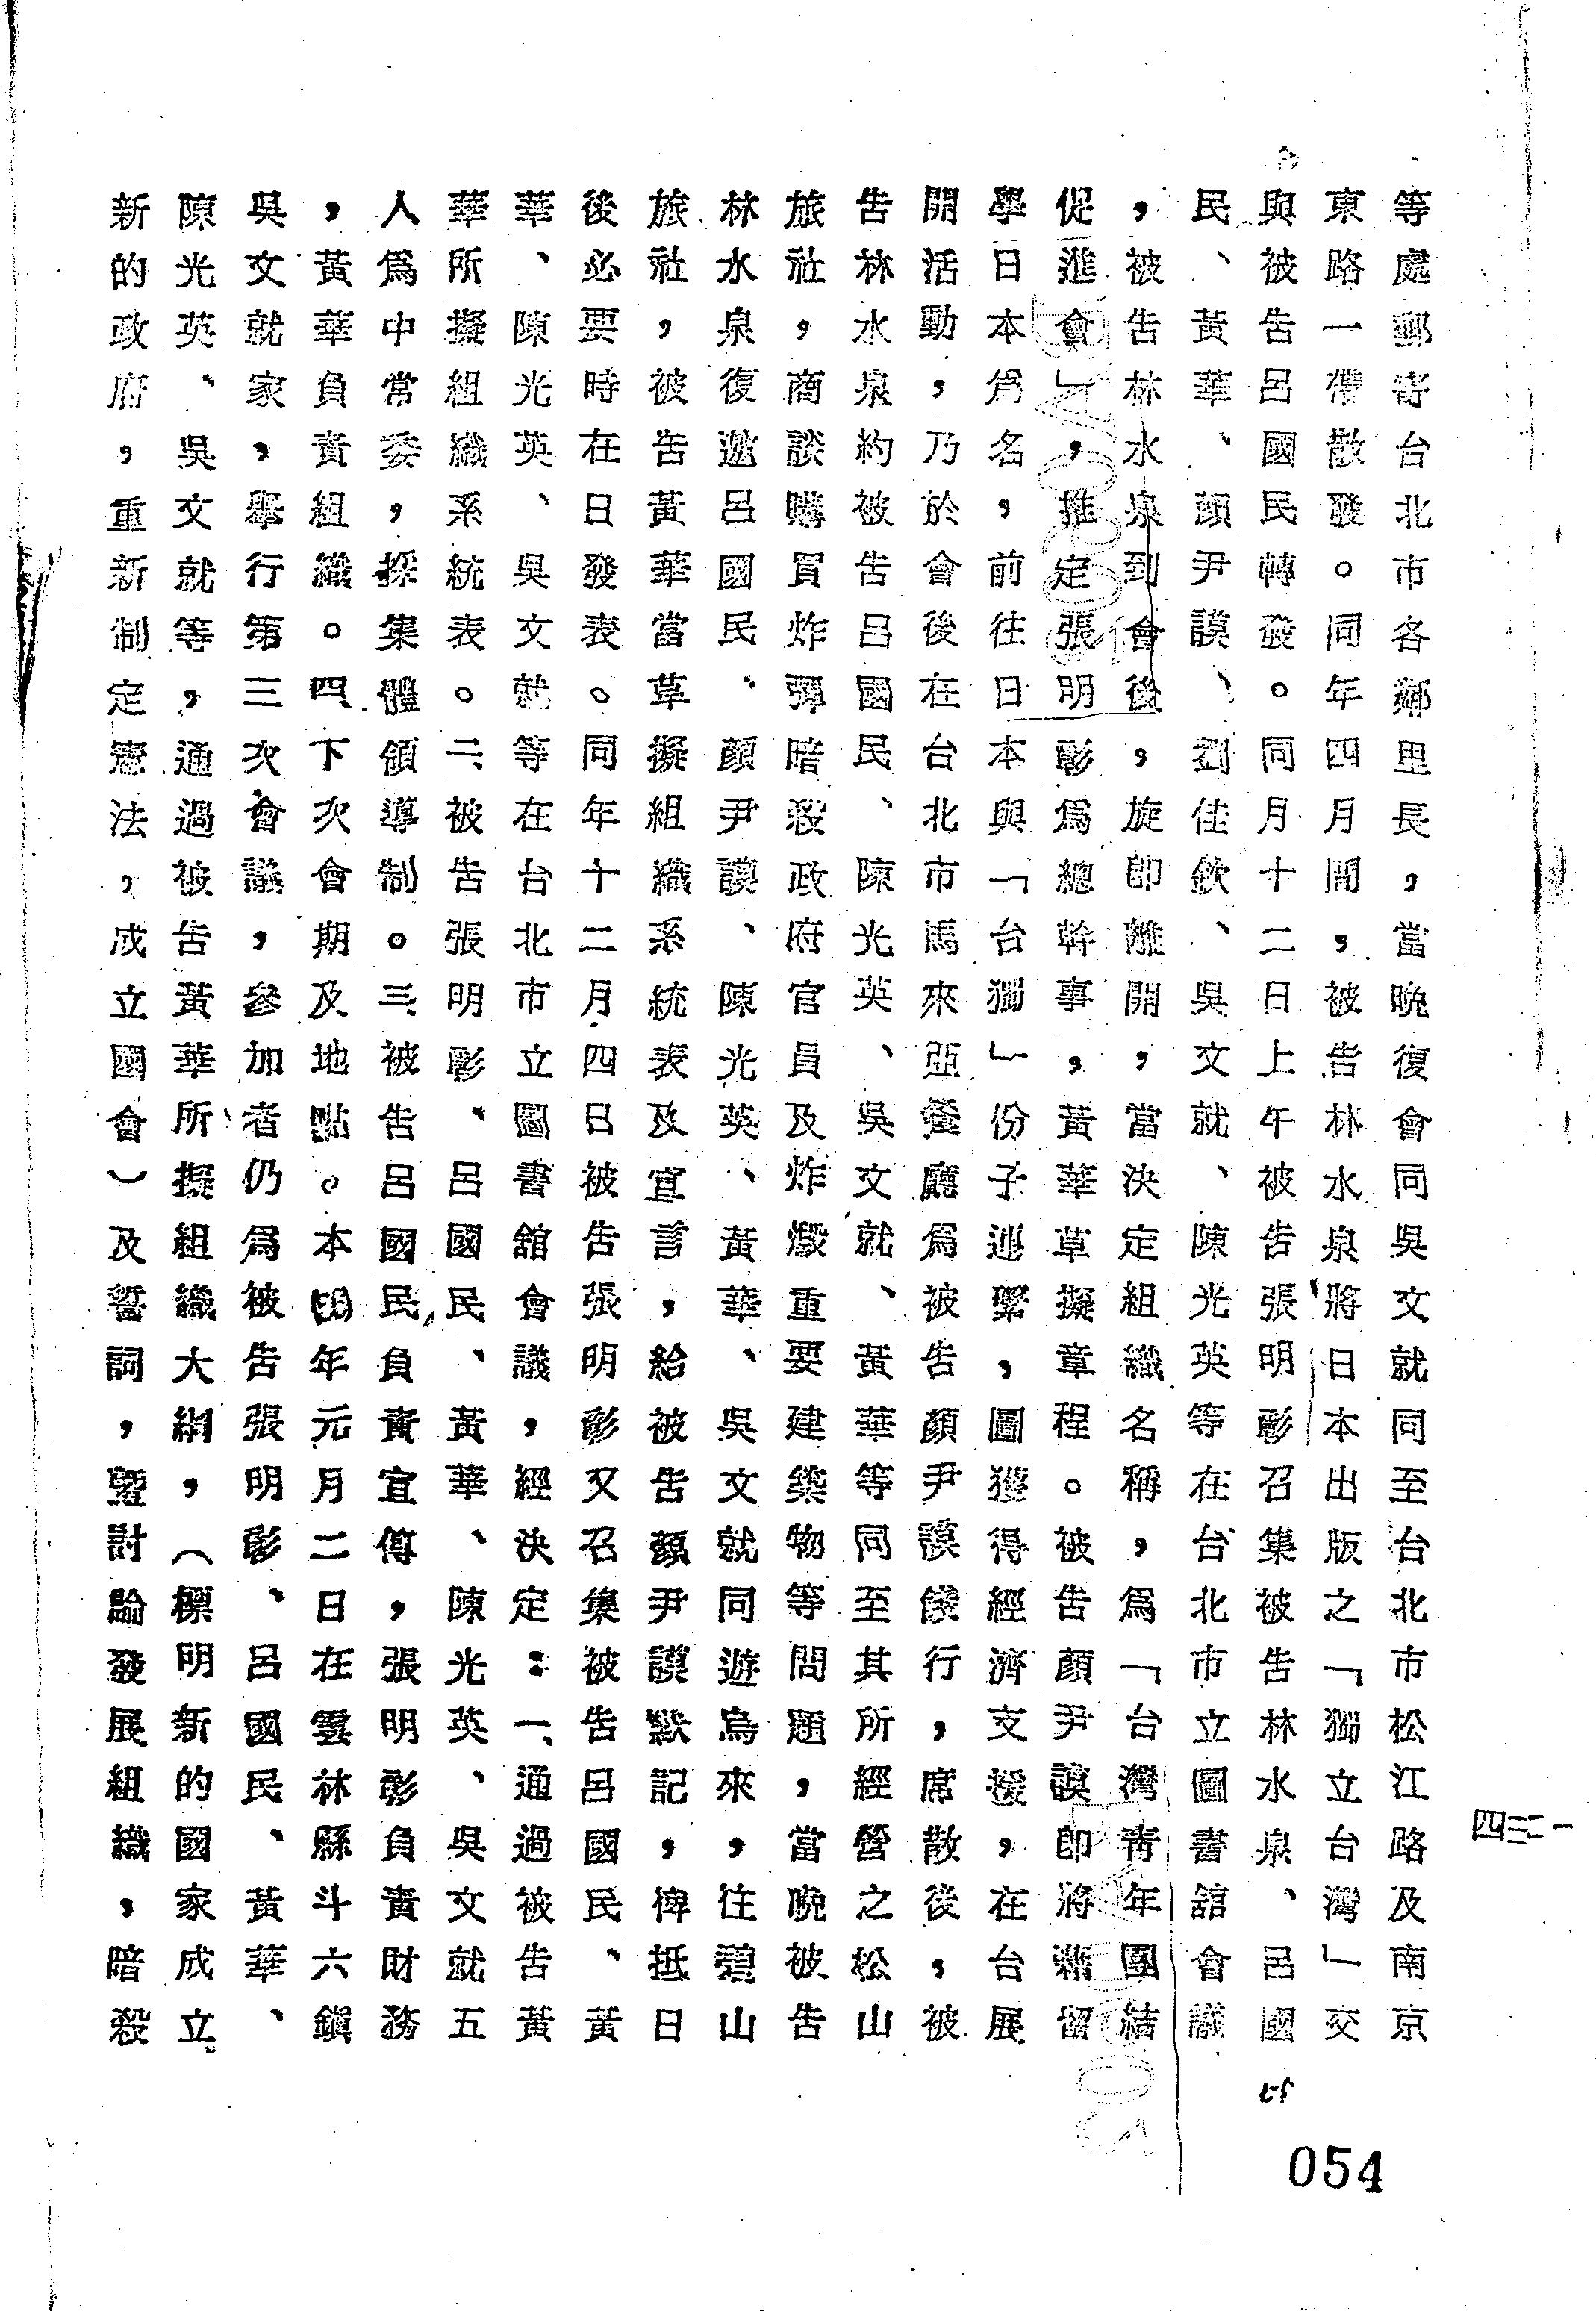 等處郵寄台北市各鄰里長，當晚復會同吳文就同至台北市松江路及南京
東路一帶散發。同年四月間，被告林水泉將日本出版之「獨立台灣」交
與被告呂國民轉發。同月十二日上午被告張明彰召集被告林水泉、呂國
民、黃華、顏尹謨、劉佳欽、吳文就、陳光英等在台北市立圖書舘會議
，被告林水泉到會後，旋即離開，當決定組織名稱，為「台灣青年團結
促進會」，推定張明彰為總幹事，黃華草擬章程。被告顏尹謨即將藉留
學日本為名，前往日本與「台獨」份子連繫，圖獲得經濟支援，在台展
開活動，乃於會後在台北市馬來亞餐廳為被告顏尹謨餞行，席散後，被
告林水泉約被告呂國民、陳光英、吳文就、黃華等同至其所經營之松山
旅社，商談購買炸彈暗殺政府官員及炸燬重要建築物等問題，當晚被告
林水泉復邀呂國民、顏尹謨、陳光英、黃華、吳文就同遊烏來，往碧山
旅社，被告黃華當草擬組織系統表及宣言，給被告顏尹謨默記，俾抵日
後必要時在日發表。同年十二月四日被告張明彰又召集被告呂國民、黃
華、陳光英、吳文就等在台北市立圖書舘會議，經決定：一、通過被告黃
華所擬組織系統表。二、被告張明彰、呂國民、黃華、陳光英、吳文就五
人為中常委，採集體領導制。三、被告呂國民負責宣傳，張明彰負責財務
，黃華負責組織。四、下次會期及地點。本年元月二日在雲林縣斗六鎮
吳文就家，舉行第三次會議，參加者仍為被告張明彰、呂國民、黃華、
陳光英、吳文就等，通過被告黃華所擬組織大綱，（標明新的國家成立
新的政府，重新制定憲法，成立國會）及誓詞，暨討論發展組織，暗殺
四三一
054